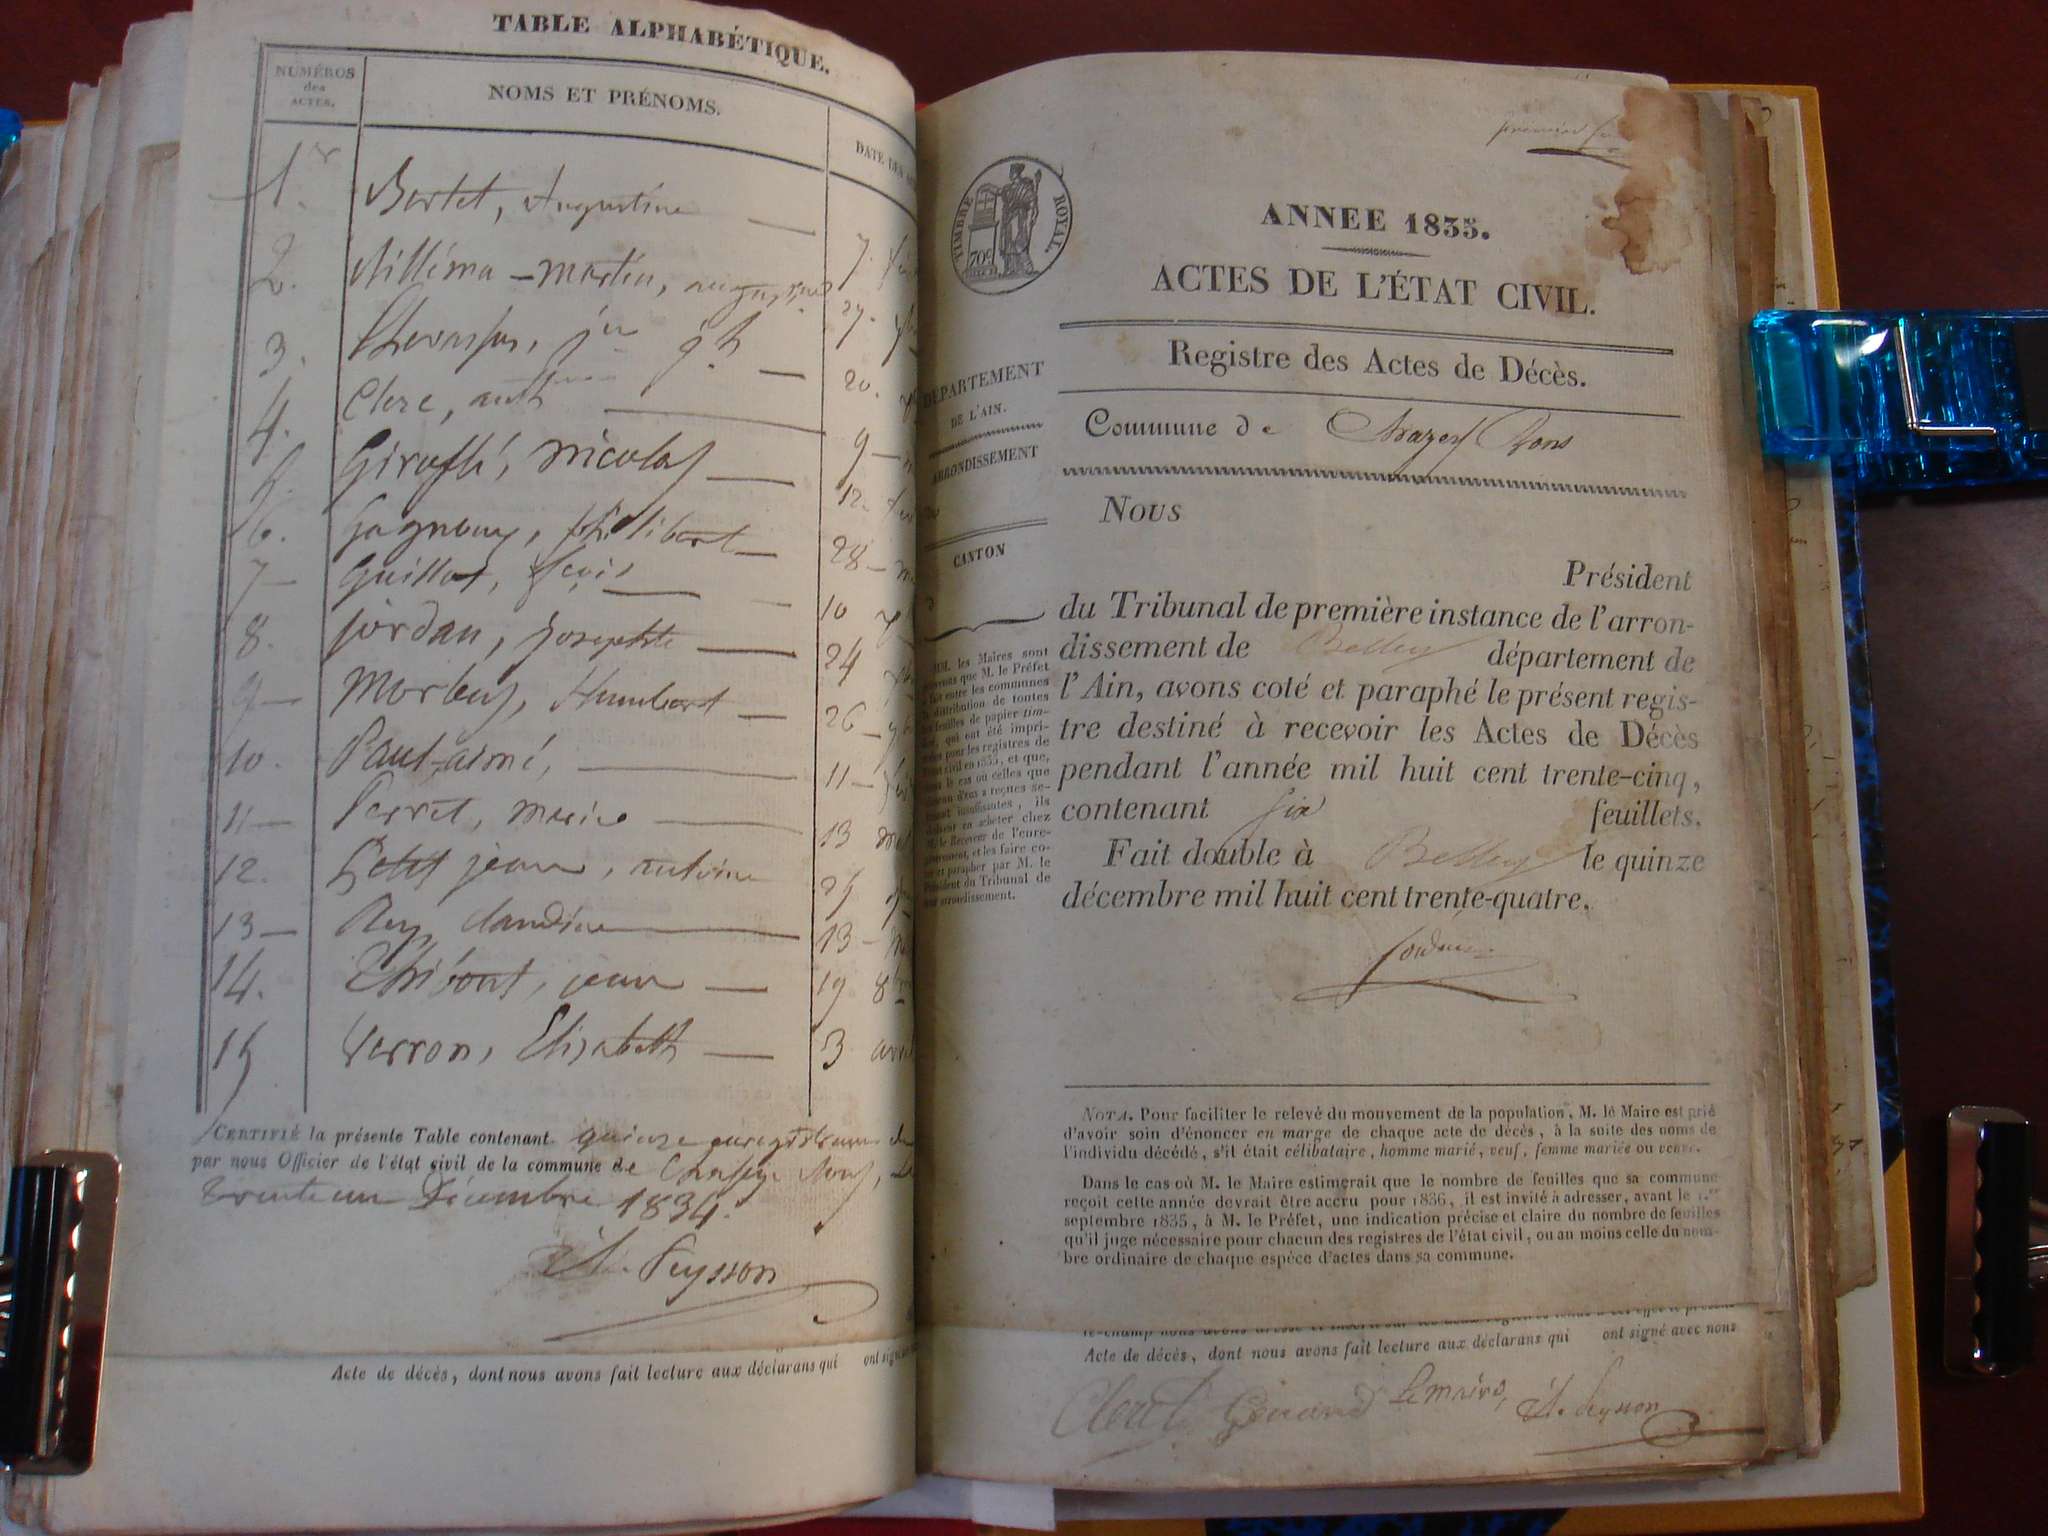 TABLE ALPHABÉTIQUE.
NUMÉROS
des
ACTES.
NOMS ET PRÉNOMS.
DATE DES
1.er Bertet, Augustine
2. martin, 7.
3. 27.
4. Clerc, anth 20.
Nicolas 9
6. philibert 12
7 Guillot, fçois 28
8. jordan, Josephte 10
9 Humbert 24
10. Paul, aimé, 26
11 Perret, marie 11
12. Petit jean, antoine 13
13 Rey, claudine 25
14. Thibout, jean 13
15 Verron, Elisabeth 19 8bre
3 avril
CERTIFIÉ la présente Table contenant quinze enregistremens
par nous Officier de l'état civil de la commune de
trente un Décembre 1834.
Peysson
Acte de décès, dont nous avons fait lecture aux déclarans qui ont signé
premier
TIMBRE ROYAL
70c
ANNEE 1835.
ACTES DE L'ÉTAT CIVIL.
Registre des Actes de Décès.
DÉPARTEMENT
DE L'AIN.
ARRONDISSEMENT
CANTON
Commune de
Nous
Président
du Tribunal de première instance de l'arron-
dissement de Belley département de
l'Ain, avons coté et paraphé le présent regis-
tre destiné à recevoir les Actes de Décès
pendant l'année mil huit cent trente-cinq,
contenant six feuillets.
Fait double à Belley le quinze
décembre mil huit cent trente-quatre.
MM. les Maires sont
que M. le Préfet
entre les communes
distribution de toutes
feuilles de papier tim-
qui ont été impri-
pour les registres de
civil en 1835, et que,
le cas où celles que
d'eux a reçues se-
insuffisantes, ils
en acheter chez
le Receveur de l'enre-
et les faire co-
et parapher par M. le
Président du Tribunal de
arrondissement.
NOTA. Pour faciliter le relevé du mouvement de la population, M. le Maire est prié
d'avoir soin d'énoncer en marge de chaque acte de décès, à la suite des noms de
l'individu décédé, s'il était célibataire, homme marié, veuf, femme mariée ou veuve.
Dans le cas où M. le Maire estimerait que le nombre de feuilles que sa commune
reçoit cette année devrait être accru pour 1836, il est invité à adresser, avant le 1.er
septembre 1835, à M. le Préfet, une indication précise et claire du nombre de feuilles
qu'il juge nécessaire pour chacun des registres de l'état civil, ou au moins celle du nom-
bre ordinaire de chaque espèce d'actes dans sa commune.
Acte de décès, dont nous avons fait lecture aux déclarans qui ont signé avec nous
Le maire, Peysson